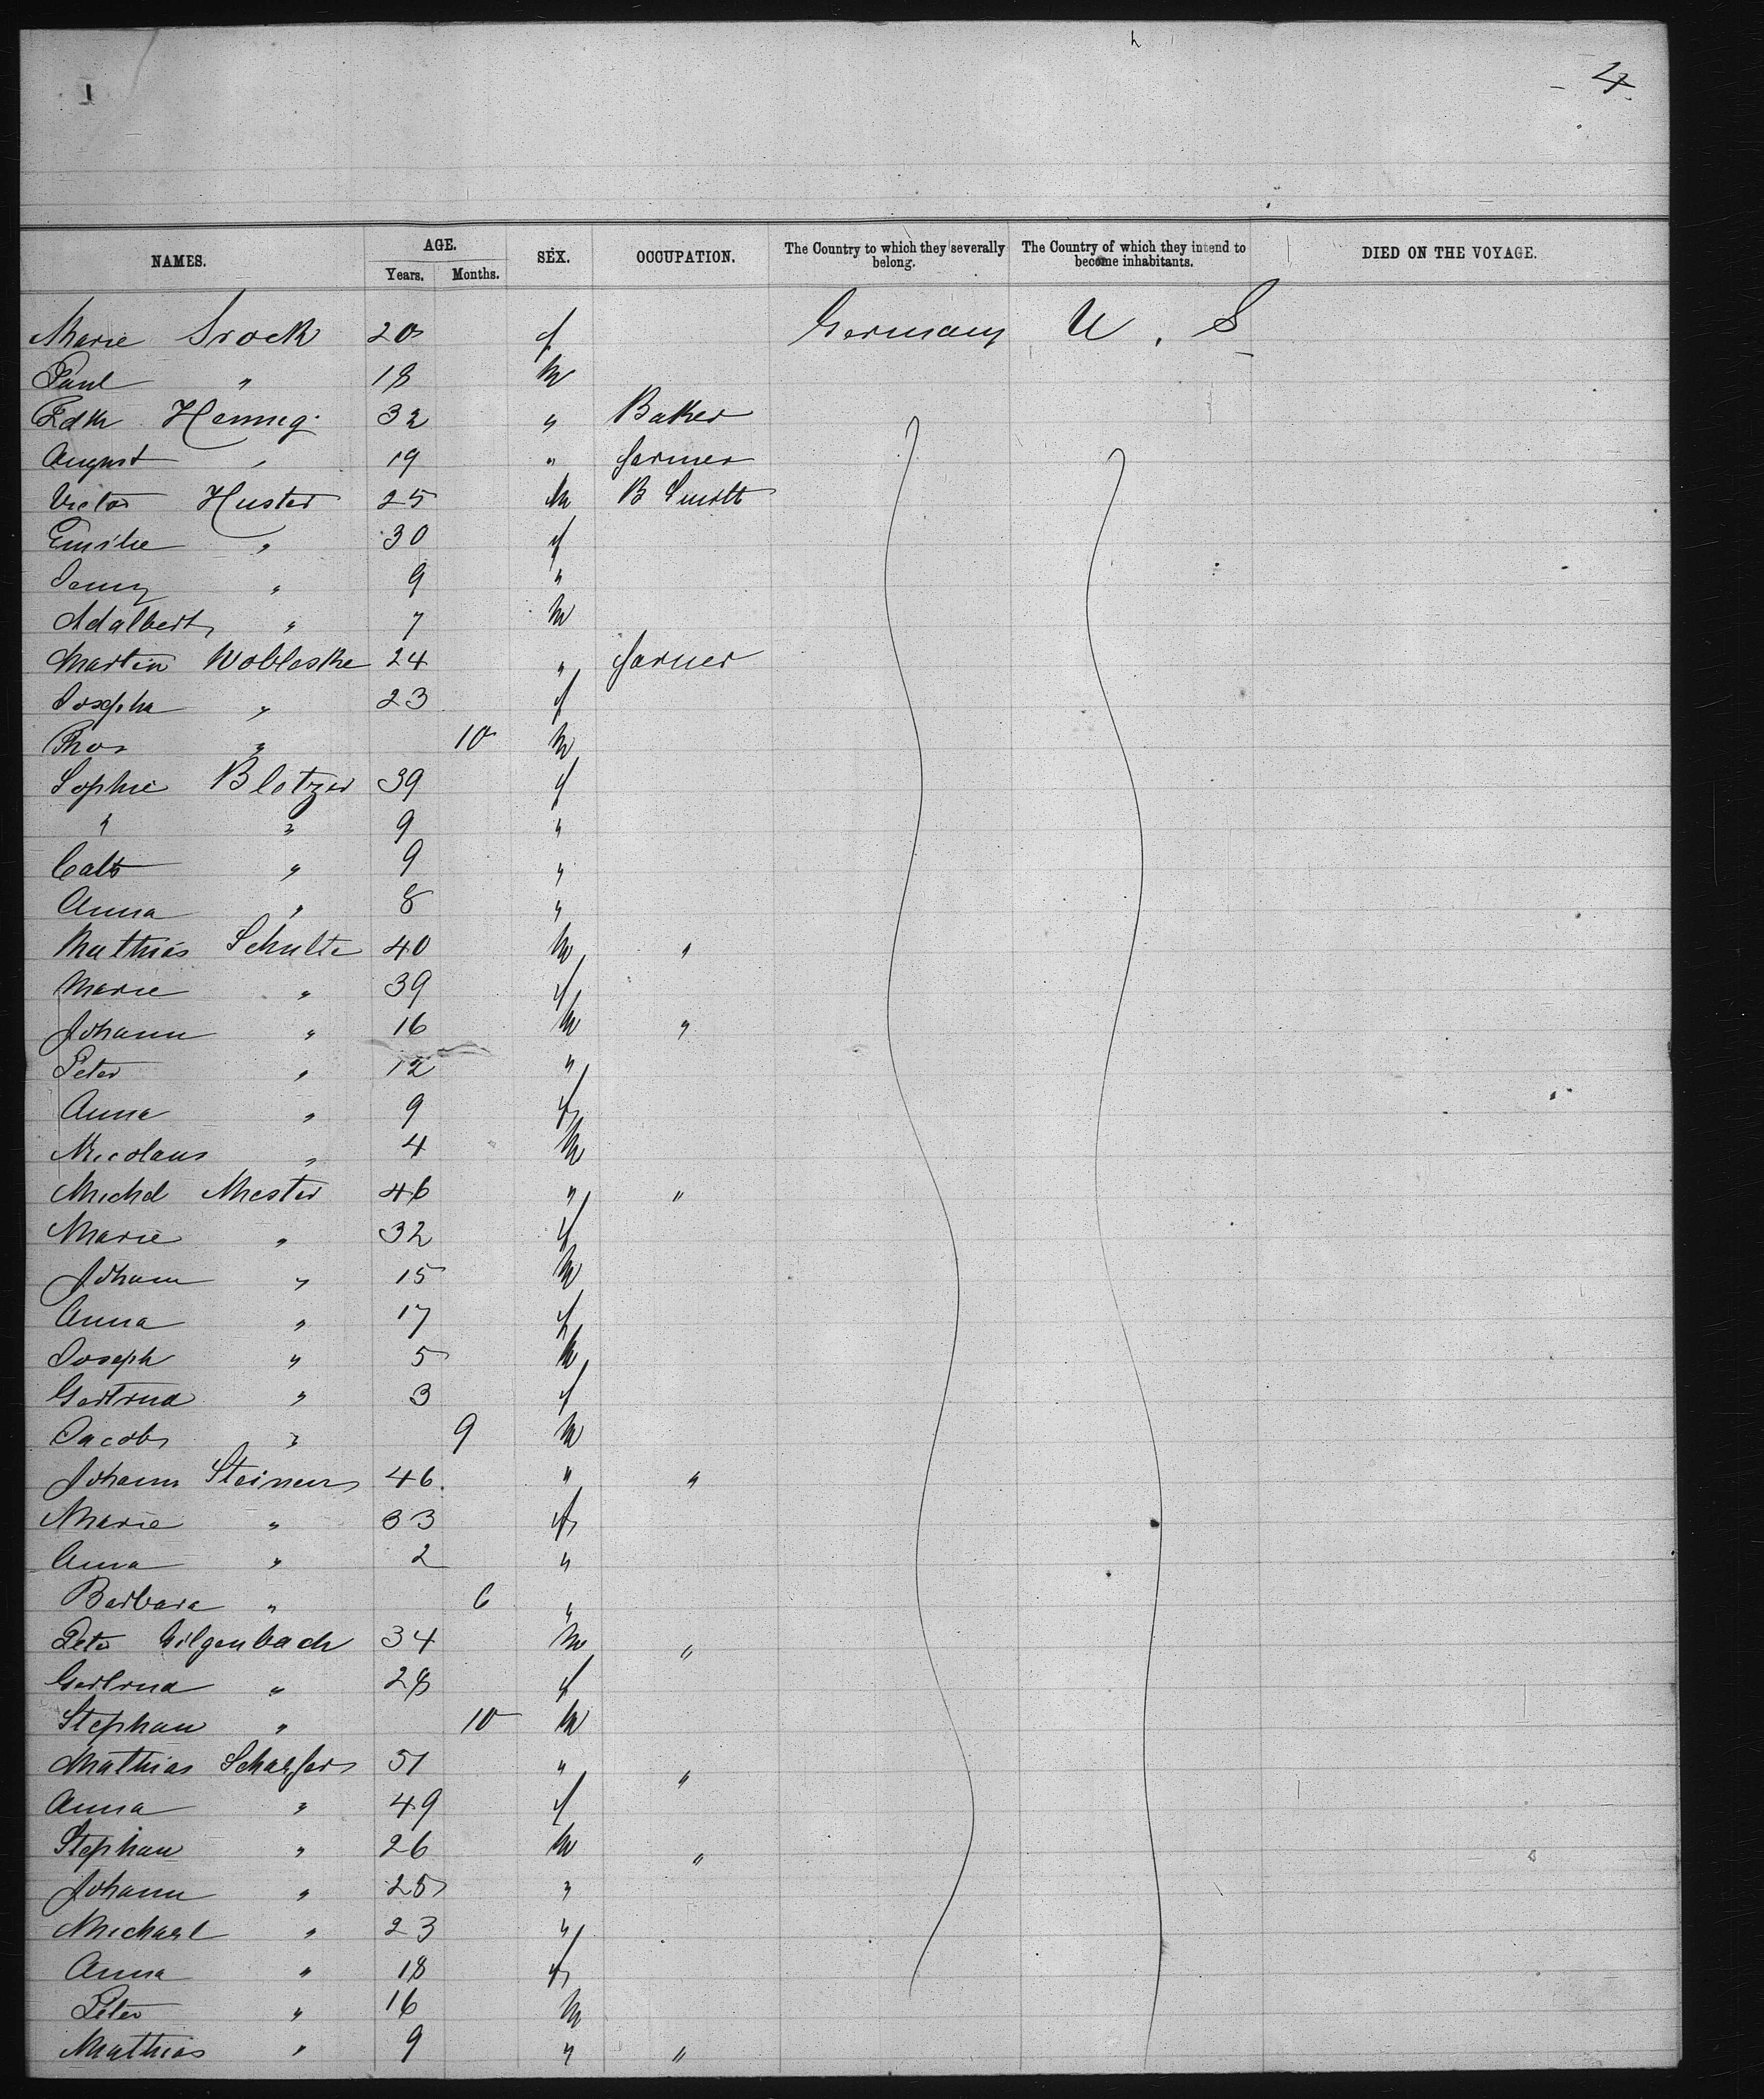 4
NAMES. AGE. SEX. OCCUPATION. The Country to which they severally belong. The Country of which they intend to become inhabitants. DIED ON THE VOYAGE.
Years. Months.
Marie Srock 20 f Germany U. S
Paul " 18 m
Fdk Hennig 32 " Baker
August " 19 " farmer
Victor Huster 25 m B Smith
Emilie " 30 f
Jenny " 9 "
Adalbert " 7 m
Martin Wobleske 24 " farmer
Josepha " 23 f
Thos " 10 m
Sophie Blotzer 39 f
" " 9 "
Cath " 9 "
Anna " 8 "
Mathias Schulte 40 m "
Marie " 39 f
Johann " 16 m "
Peter " 12 "
Anna " 9 f
Nicolaus " 4 m
Michel Mester 46 " "
Marie " 32 f
Johann " 15 m
Anna " 17 f
Joseph " 5 m
Gertrud " 3 f
Jacob " 9 m
Johann Steiner 46 " "
Marie " 33 f
Anna " 2 "
Barbara " 6 "
Peter Hilgenbach 34 m "
Gertrud " 28 f
Stephan " 10 m
Mathias Schaefer 51 " "
Anna " 49 f
Stephan " 26 m "
Johann " 25 "
Michael " 23 "
Anna " 18 f
Peter " 16 m
Mathias " 9 " "